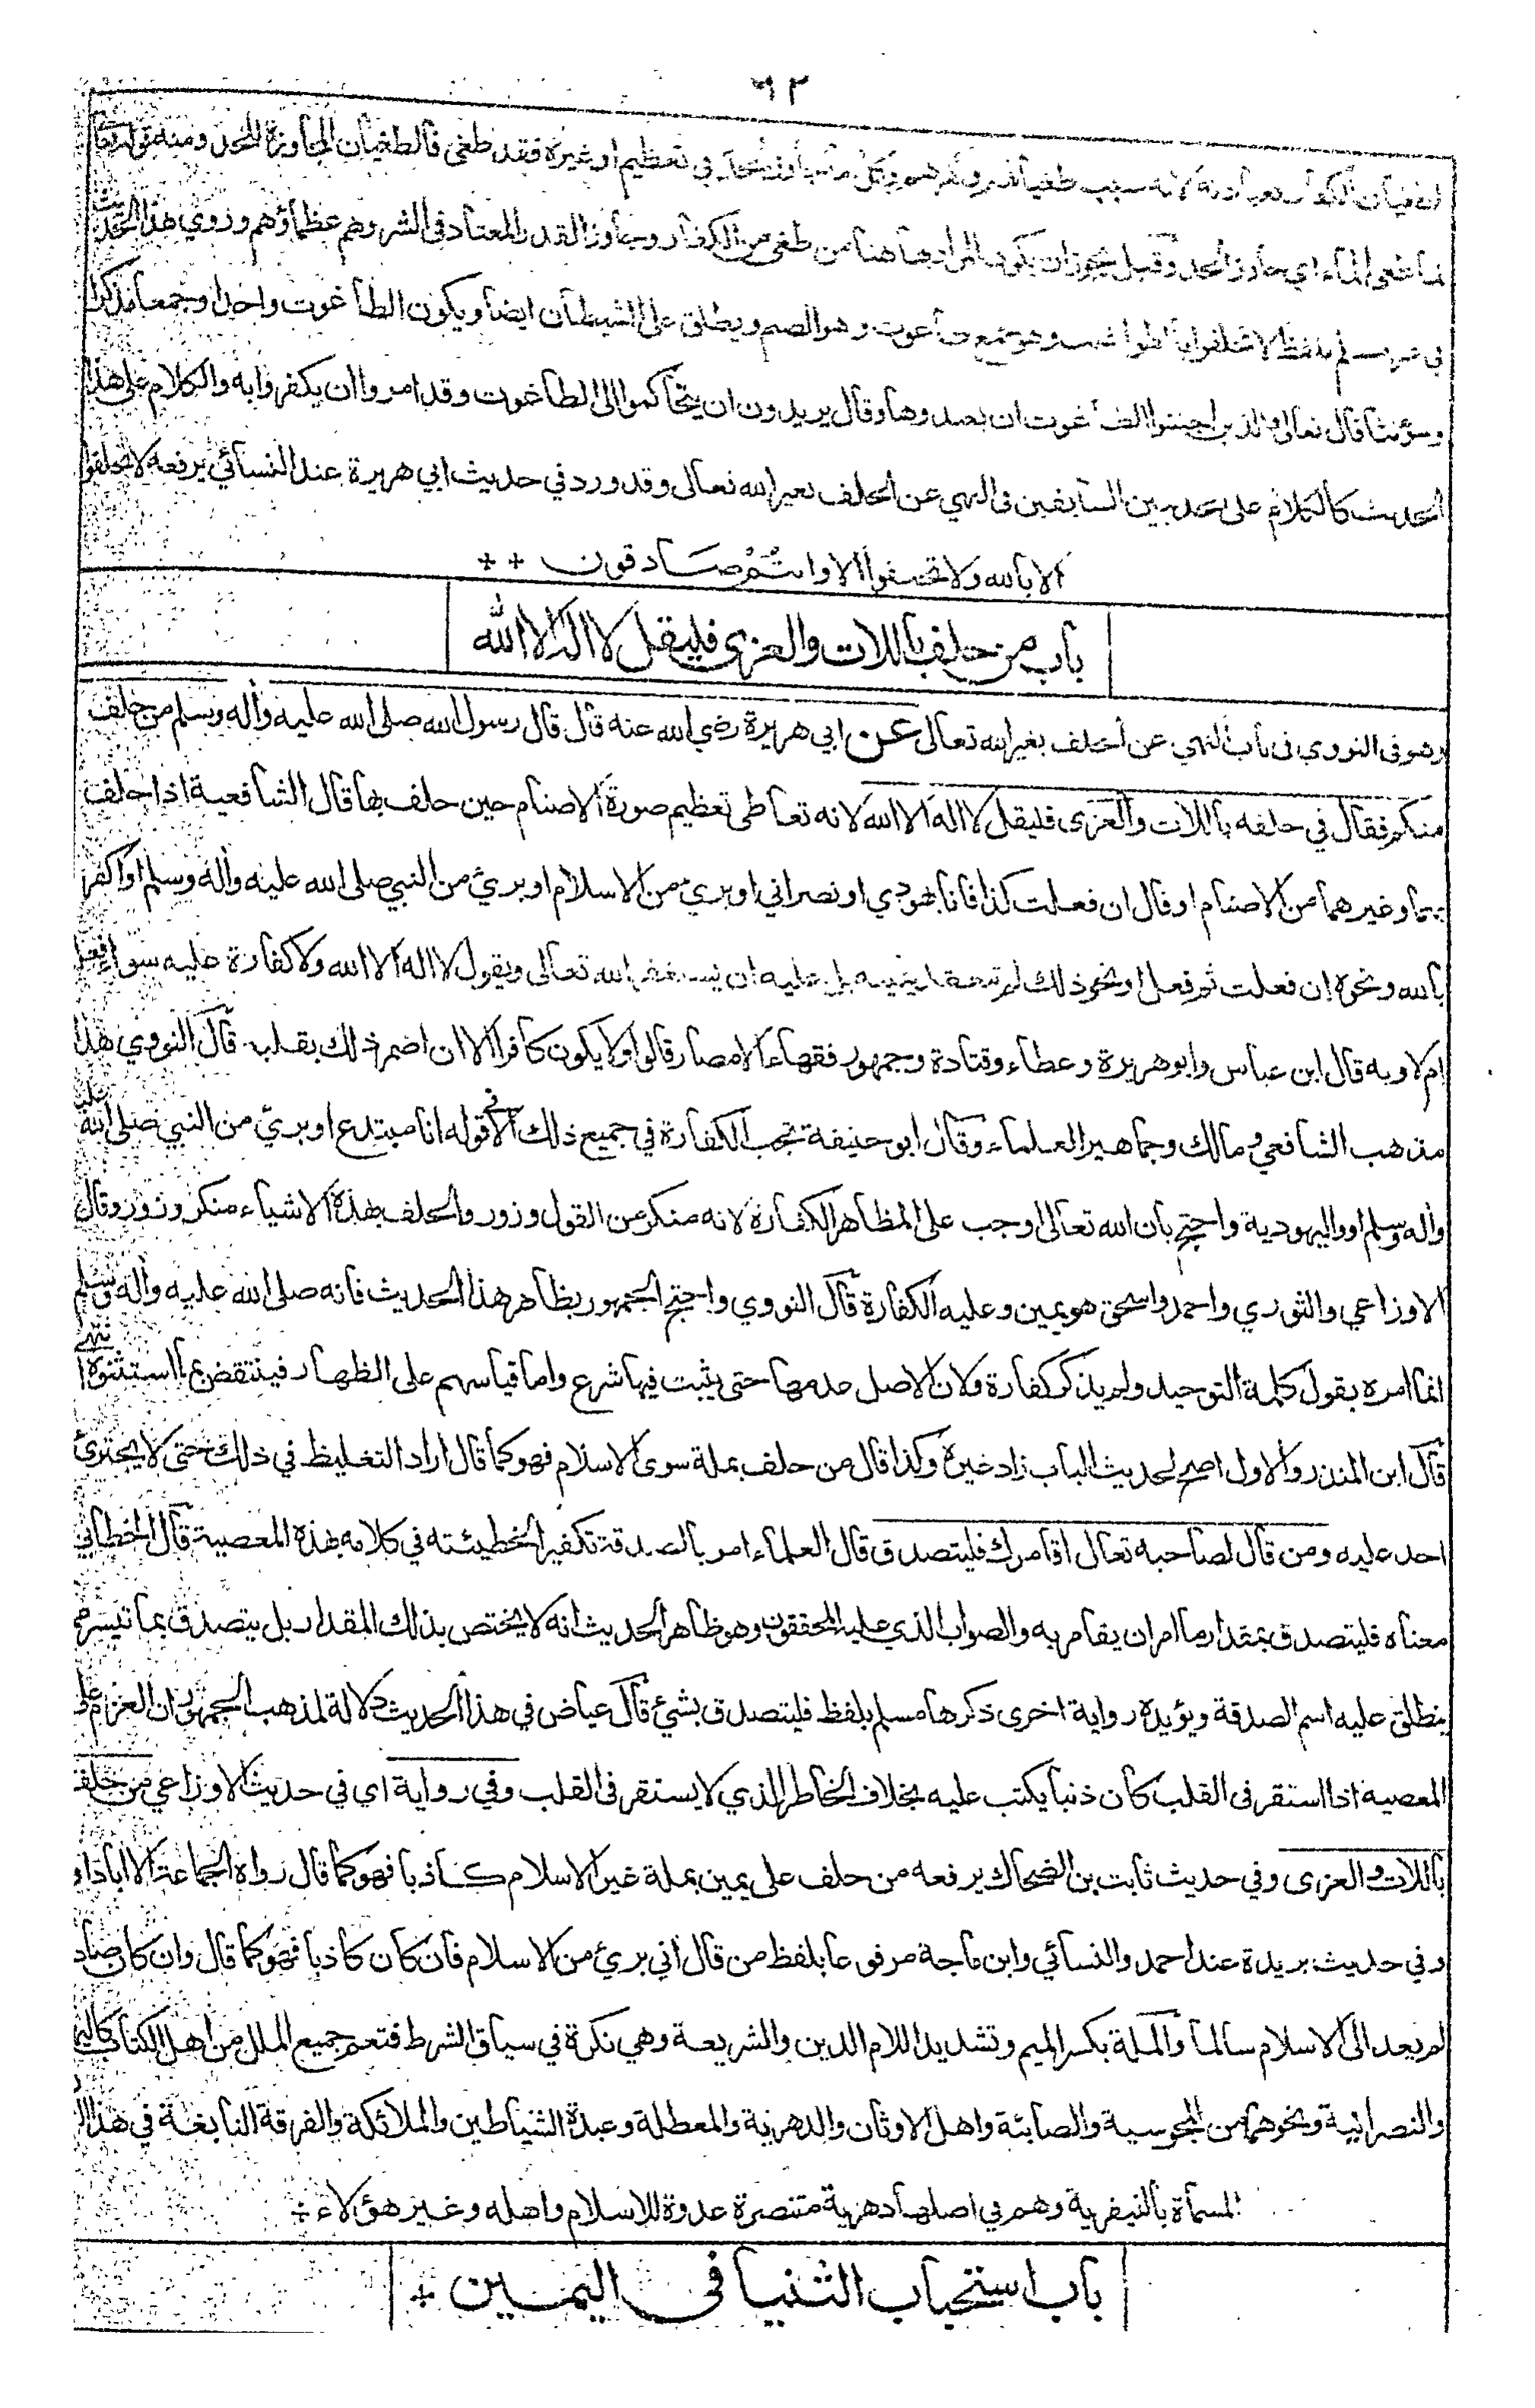 ٦٢
طغيان الكفار بعبادته لانه سبب طغيانهم وكفرهم وكل ما جاوز الحد في تعظيم او غيره فقد طغى فالطغيان المجاوزة للحد ومنه قوله تعالى
لما طغى الماء اي جاوز الحد وقيل يجوز ان يكون المراد بها هنا من طغى من الكفار وجاوز القدر المعتاد في الشر وهم عظماؤهم وروي هذا الحديث
في غير مسلم بلفظ لا تحلفوا بالطواغيت وهو جمع طاغوت وهو الصنم ويطلق على الشيطان ايضا ويكون الطاغوت واحدا وجمعا مذكرا
ومؤنثا قال تعالى والذين اجتنبوا الطاغوت ان يعبدوها وقال يريدون ان يتحاكموا الى الطاغوت وقد امروا ان يكفروا به والكلام على هذا
الحديث كالكلام على الحديثين السابقين في النهي عن الحلف بغير الله تعالى وقد ورد في حديث ابي هريرة عند النسائي يرفعه لا تحلفوا
الا بالله ولا تحلفوا الا وانتم صادقون
باب من حلف باللات والعزى فليقل لا اله الا الله
وهو في النووي في باب النهي عن الحلف بغير الله تعالى عن ابي هريرة رضي الله عنه قال قال رسول الله صلى الله عليه وآله وسلم من حلف
منكم فقال في حلفه باللات والعزى فليقل لا اله الا الله لانه تعاطى تعظيم صورة الاصنام حين حلف بها قال الشافعية اذا حلف
بهما وغيرهما من الاصنام او قال ان فعلت كذا فانا يهودي او نصراني او بريء من الاسلام او بريء من النبي صلى الله عليه وآله وسلم او اكفر
بالله ونحوه ان فعلت ثم فعل او نحو ذلك لم تنعقد يمينه بل عليه ان يستغفر الله تعالى ويقول لا اله الا الله ولا كفارة عليه سواء فعل
ام لا وبه قال ابن عباس وابو هريرة وعطاء وقتادة وجمهور فقهاء الامصار قالوا ولا يكون كافرا الا ان اضمر ذلك بقلبه قال النووي هذا
مذهب الشافعي ومالك وجماهير العلماء وقال ابو حنيفة تجب الكفارة في جميع ذلك الا في قوله انا مبتدع او بريء من النبي صلى الله عليه
وآله وسلم او واليهودية واحتج بان الله تعالى اوجب على المظاهر الكفارة لانه منكر من القول وزور والحلف بهذه الاشياء منكر وزور وقال
الاوزاعي والثوري واحمد واسحق هو يمين وعليه الكفارة قال النووي واحتج الجمهور بظاهر هذا الحديث فانه صلى الله عليه وآله وسلم
انما امره بقول كلمة التوحيد ولم يذكر كفارة ولان الاصل عدمها حتى يثبت فيها شرع واما قياسهم على الظهار فينتقض بما استثنوه انتهى
قال ابن المنذر والاول اصح لحديث الباب زاد غيره وكذا قال من حلف بملة سوى الاسلام فهو كما قال اراد التغليظ في ذلك حتى لا يجترئ
احد عليه ومن قال لصاحبه تعال اقامرك فليتصدق قال العلماء امر بالصدقة تكفيرا لخطيئته في كلامه بهذه المعصية قال الخطابي
معناه فليتصدق بمقدار ما امر ان يقامر به والصواب الذي عليه المحققون وهو ظاهر الحديث انه لا يختص بذلك المقدار بل يتصدق بما تيسر مما
ينطلق عليه اسم الصدقة ويؤيده رواية اخرى ذكرها مسلم بلفظ فليتصدق بشيء قال عياض في هذا الحديث دلالة لمذهب الجمهور ان العزم على
المعصية اذا استقر في القلب كان ذنبا يكتب عليه بخلاف الخاطر الذي لا يستقر في القلب وفي رواية اي في حديث الاوزاعي من حلف
باللات والعزى وفي حديث ثابت بن الضحاك يرفعه من حلف على يمين بملة غير الاسلام كاذبا فهو كما قال رواه الجماعة الا ابا داود
وفي حديث بريدة عند احمد والنسائي وابن ماجة مرفوعا بلفظ من قال اني بريء من الاسلام فان كان كاذبا فهو كما قال وان كان صادقا
لم يعد الى الاسلام سالما والملة بكسر الميم وتشديد اللام الدين والشريعة وهي نكرة في سياق الشرط فتعم جميع الملل من اهل الكتاب كاليهودية
والنصرانية ونحوهما من المجوسية والصابئة واهل الاوثان والدهرية والمعطلة وعبدة الشياطين والملائكة والفرقة النابغة في هذا
المسماة بالنيفرية وهم في اصلها دهرية متنصرة عدوة للاسلام واهله وغير هؤلاء
باب استحباب الثنيا في اليمين